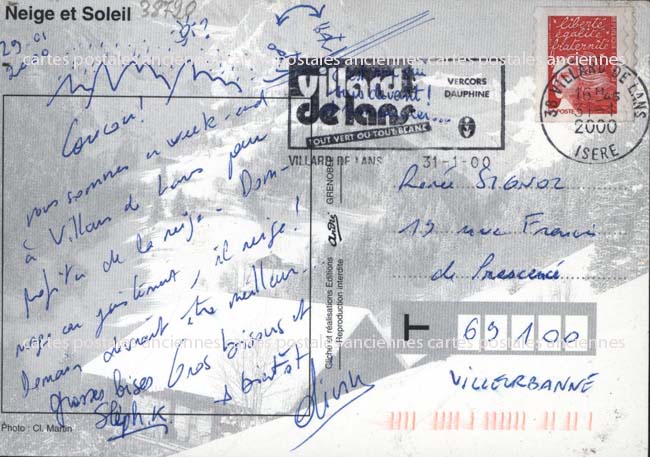 Neige et Soleil
38720
29.01
2000
Coucou!
nous sommes en week-end
à Villars de Lans pour
profiter de la neige. Dom-
mage on justement, il neige!
Demain devrait être meilleur...
grosses bises Gros bisous et
à bientôt
Steph.K
Photo : Cl. Martin
Cliché et réalisations Editions
Reproduction interdite
André
GRENOBLE
villard
de lans
TOUT VERT OU TOUT BLANC
VERCORS
DAUPHINE
VILLARD DE LANS 31-1-00
liberté
égalité
fraternité
POSTE
38 VILLARD DE LANS
16 H 45
31-1
2000
ISERE
Renée SIGNOZ
19 rue Francis
de Pressensé
T 69100
VILLEURBANNE
cartes postales anciennes cartes postales anciennes cartes postales anciennes